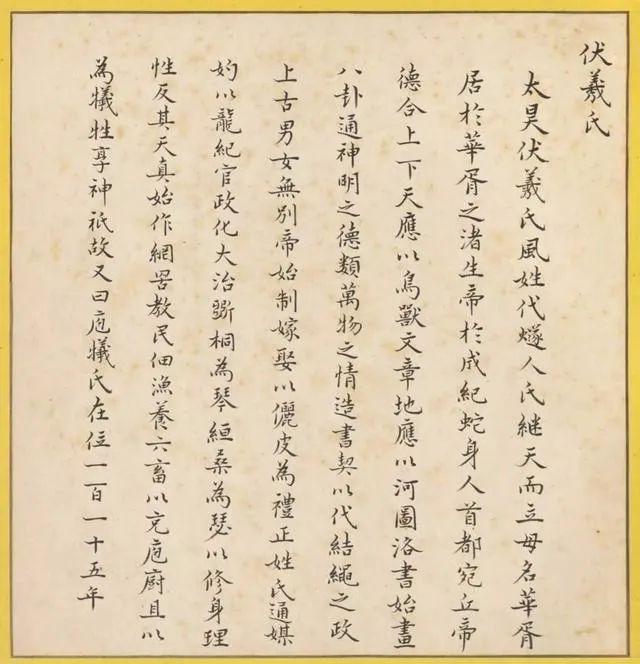 伏羲氏
太昊伏羲氏風姓代燧人氏継天而立母名華胥
居於華胥之渚生帝於成紀蛇身人首都宛丘帝
德合上下天應以鳥獸文章地應以河圖洛書始畫
八卦通神明之德類萬物之情造書契以代結繩之政
上古男女無別帝始制嫁娶以儷皮為禮正姓氏通媒
妁以龍紀官政化大治斵桐為琴絙桑為瑟以修身理
性反其天真始作網罟教民佃漁養六畜以充庖廚且以
為犧牲享神祇故又曰庖犧氏在位一百一十五年